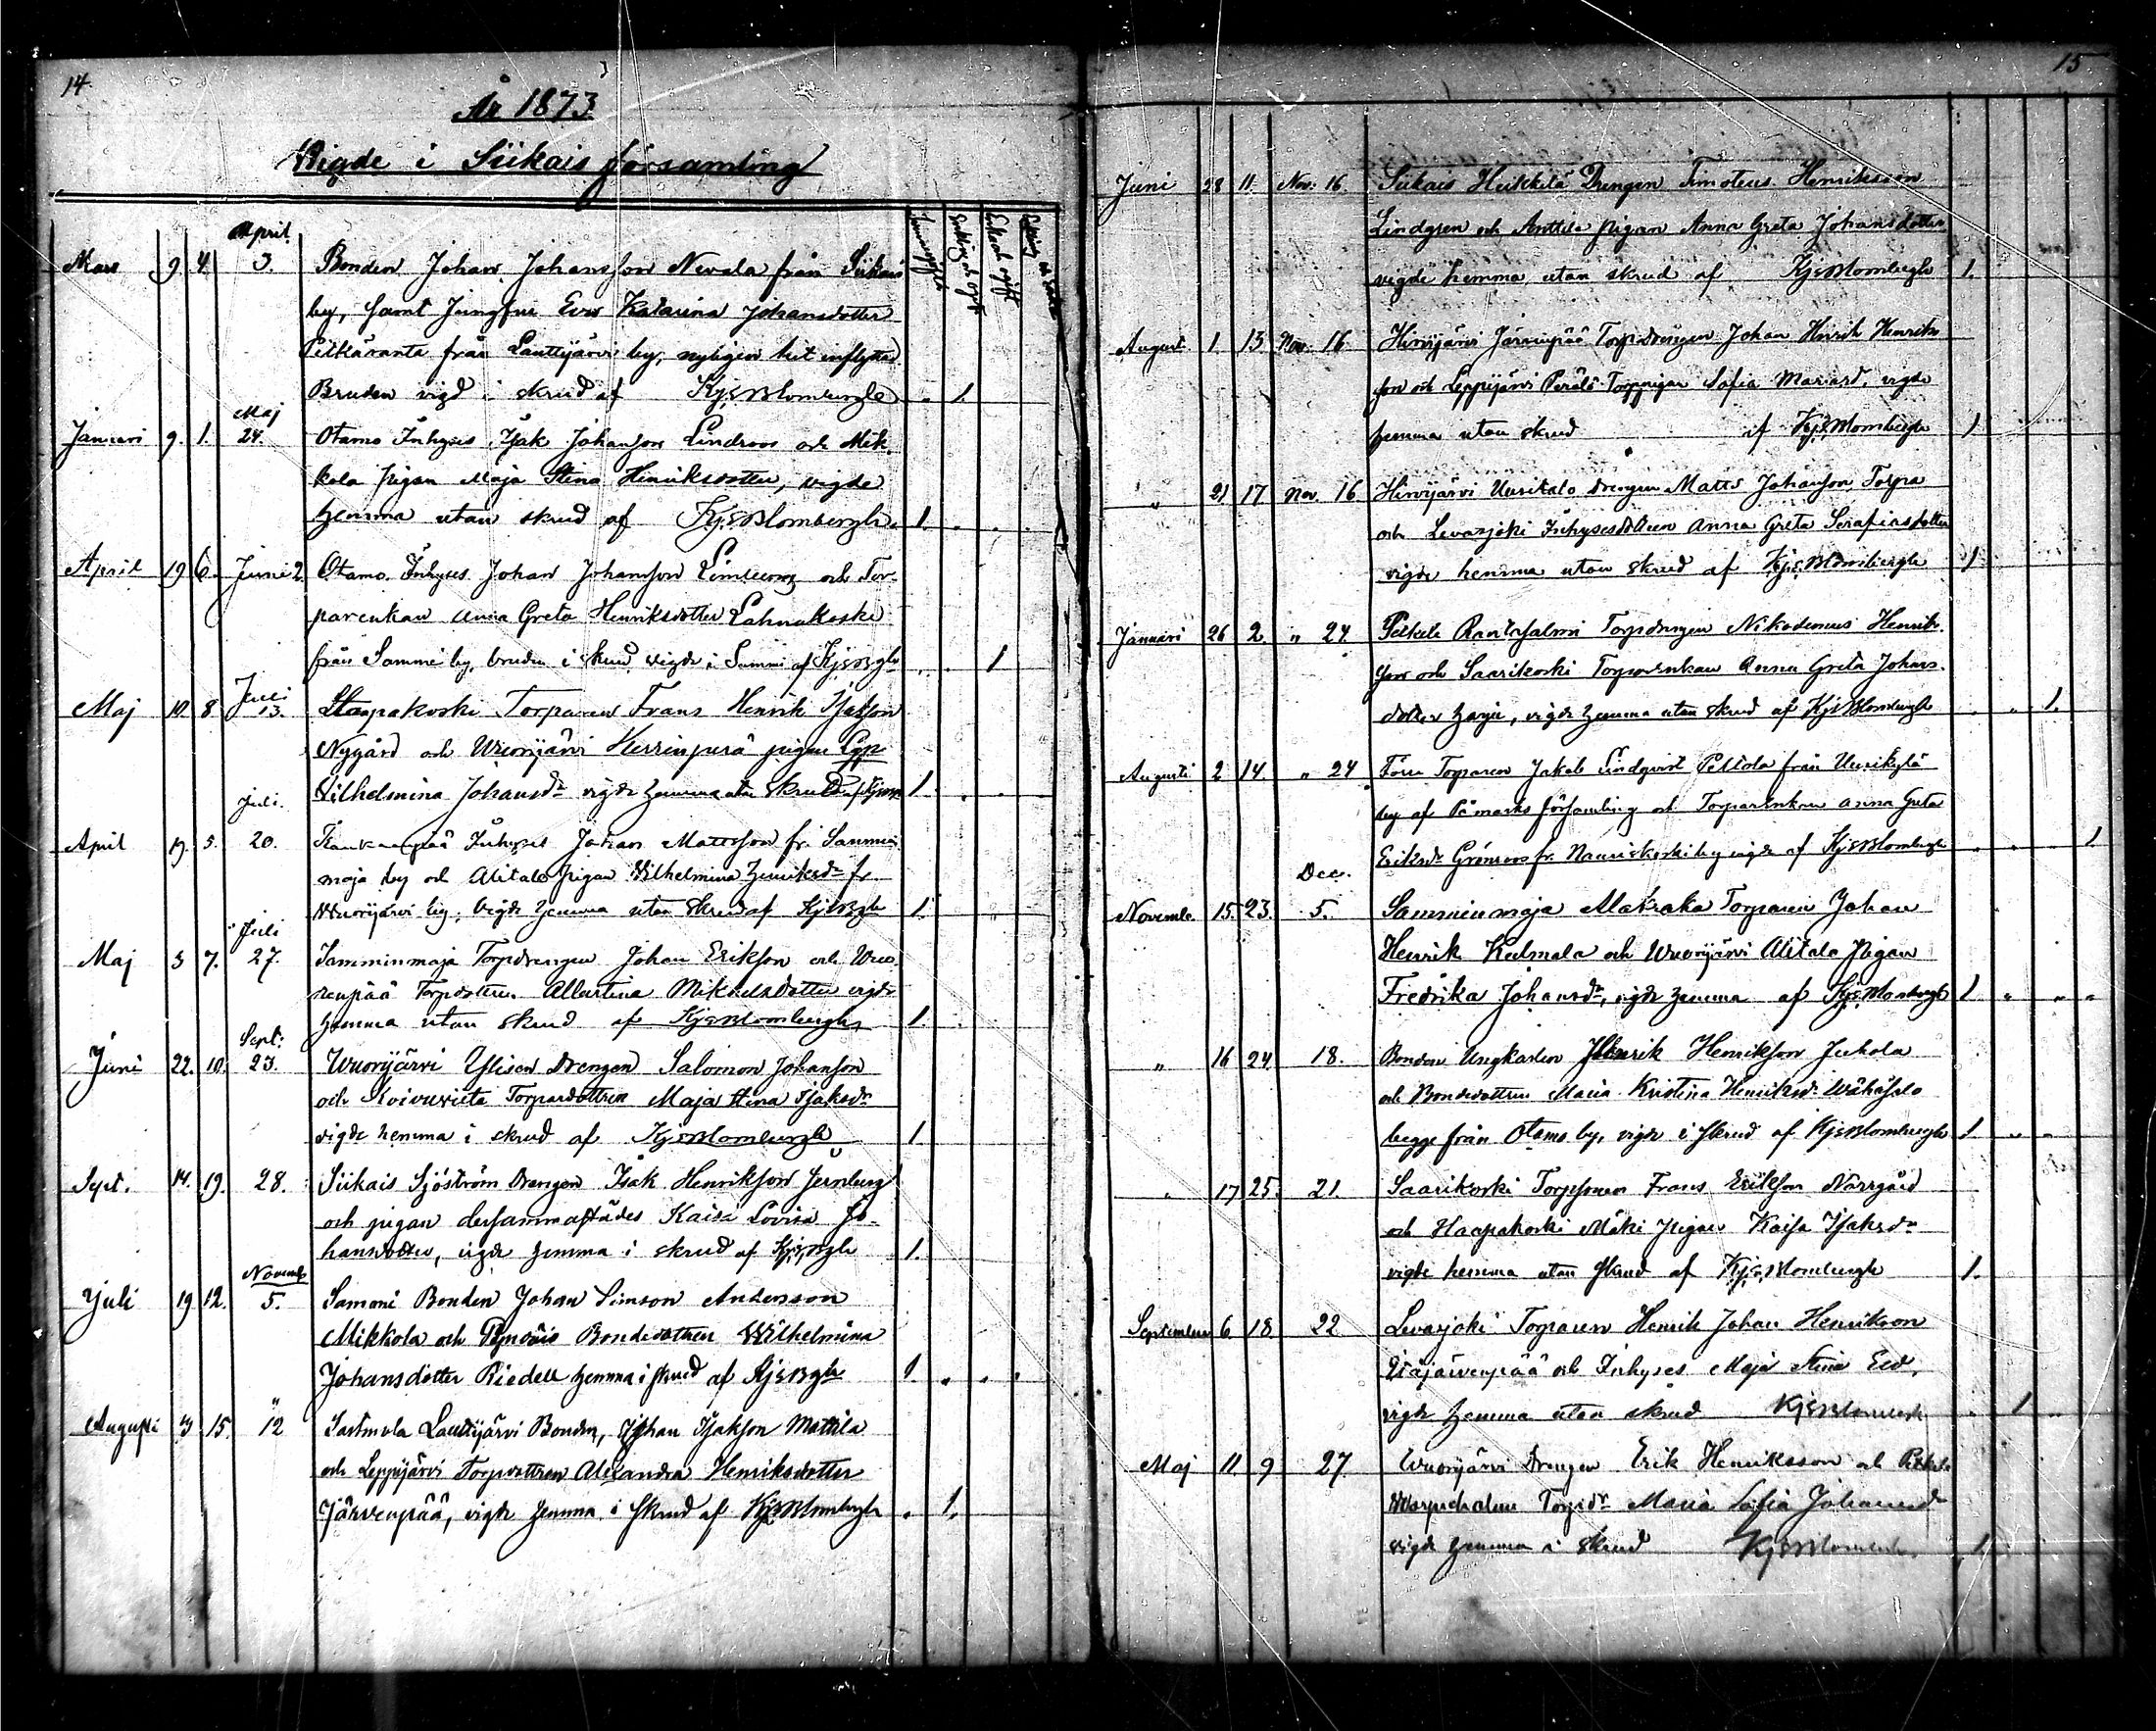 14
År 1873
Vigde i Siikais församling
April
Mars 9 4. 3. Bonden Johan Johansson Nevala från Siikais
by, samt Jungfru Eva Katarina Johansdotter
Pitkäranta från Lauttijärvi by, nyligen hit inflyttad
Bruden vigd i skrud af KjEBlombergh 1.
Maj
Januari 9. 1. 24. Otamo Inhyses Isak Johansson Lindroos och Mik
kola pigan Maja Stina Henriksdotter, vigde
hemma utan skrud af KjEBlombergh. 1.
April 19 6. Juni 2 Otamo Inhyses Johan Johansson och Tor-
parenkan Anna Greta Henriksdotter Lahnakoski
från Sammi by, bruden i skrud vigde i Sammi af KjEBgh 1
Juli
Maj 10. 8 13. Haapakoski Torparen Frans Henrik Isaksson
Nygård och Wuorijärvi Herrinperä pigan
Vilhelmina Johansdr vigde hemma utan skrud af 1.
Juli.
April 19. 5. 20. Kankaanpää Inhyses Johan Mattsson fr. Sammin
maja by och Alitalo pigan Wilhelmina Henriksdr fr.
Wuorijärvi by, vigde hemma utan skrud af KjEBgh 1.
Juli
Maj 3 7. 27. Samminmaja Torpdrengen Johan Eriksson och
Torpdottren Albertina Mikaelsdotter vigde
hemma utan skrud af KjEBlombergh 1.
Sept:
Juni 22. 10. 23. Wuorijärvi Ylisen Drengen Salomon Johansson
och Koivuviita Torpardottren Maja Stina Isaksdr
vigde hemma i skrud af KjEBlombergh 1
Sept. 14. 19. 28. Siikais Sjöström Drengen Isak Henriksson Jernberg
och pigan dersammastädes Kaisa Lovisa Jo-
hansdotter, vigde hemma i skrud af KjEBgh 1.
Novemb
Juli 19 12. 5. Sammi Bonden Johan Simson Andersson
Mikkola och Bondedottren Wilhelmina
Johansdotter Riedell hemma i skrud af KjEBgh 1.
"
Augusti 3 15. 12 Sastmola Lauttijärvi Bonden, Johan Isaksson Mattila
och Leppijärvi Torpdottren Alexandra Henriksdotter
Järvenpää, vigde hemma i skrud af KjEBlombergh 1.
15
Juni 28 11. Nov: 16. Siikais Heikkilä Drengen Timoteus Henriksson
Lindgren och Anttila pigan Anna Greta Johansdotter
vigde hemma utan skrud af KjEBlombergh 1.
August. 1. 13. Nov. 16. Hirvijärvi Järvenpää Torpdrengen Johan Henrik Henriks-
son och Leppijärvi Perälä Torppigan Sofia Mariasd, vigde
hemma utan skrud af KjEBlombergh 1
" 21 17 Nov. 16 Hirvijärvi Uusitalo Drengen Matts Johansson Torpa
och Levasjoki Inhysesdottren Anna Greta Serafiasdotter
vigde hemma utan skrud af KjEBlombergh 1
Januari 26 2. " 24. Raatasalmi Torpdrengen Nikodemus Henriks-
son och Saarikoski Torparenkan Anna Greta Johans-
dotter Harju, vigde hemma utan skrud af KjEBlombergh 1.
Augusti 2 14. " 24 Förre Torparen Jakob Lindqvist Peltola från Uusikylä
by af Påmarks församling och Torparenkan Anna Greta
Eriksdr Grönroos fr. Nauriskoski by vigde af KjEBlombergh 1
Dec.
Novemb. 15. 23. 5. Samminmaja Matraka Torparen Johan
Henrik Kulmala och Wuorijärvi Alitalo pigan
Fredrika Johansdr, vigde hemma af KjEBlombergh 1 " " "
" 16 24 18. Bonden Ungkarlen Henrik Henriksson Juhola
och Bondedottren Maria Kristina Henriksdr Wähäsalo
begge från Otamo by, vigde i skrud af KjEBlombergh 1
" 17 25. 21. Saarikoski Frans Eriksson Norrgård
och Haapakoski Mäki pigan Kaisa Isaksdr
vigde hemma utan skrud af KjEBlombergh 1.
September 6. 18 22 Levasjoki Torparen Henrik Johan Henriksson
Isojärvenpää och Inhyses Maja Stina
vigde hemma utan skrud KjEBlombergh 1
Maj 11. 9 27 Wuorijärvi Drengen Erik Henriksson och
Torpdr Maria Sofia Johansdr
vigde hemma i skrud KjEBlombergh 1